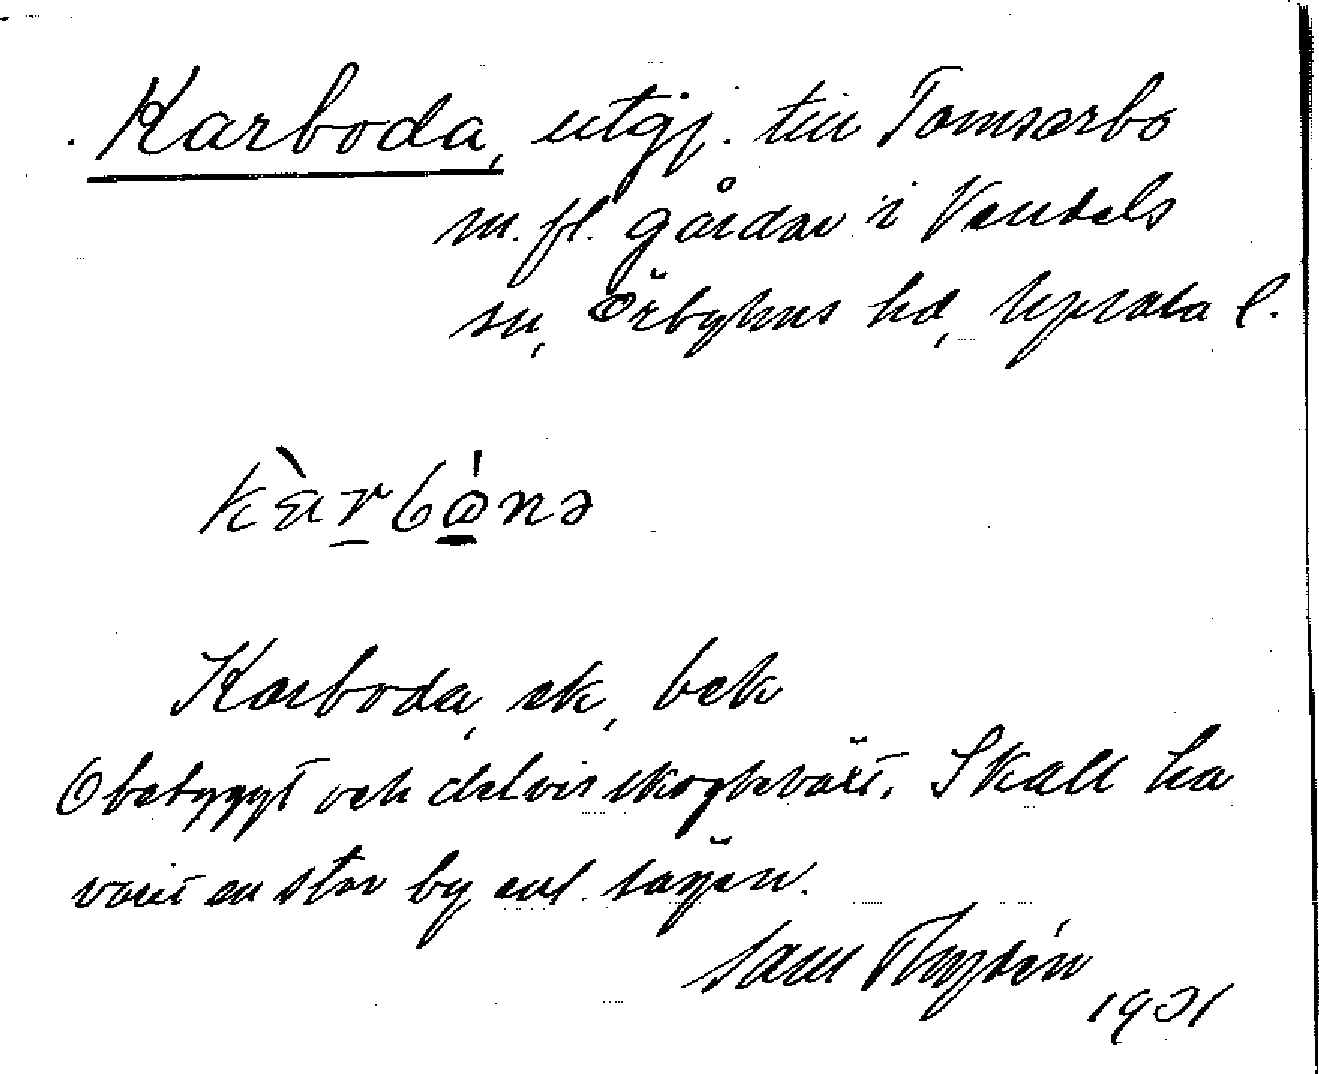 Karboda, utgj. till Tomsarbo
m. fl. gårdar i Vendels
sn, Örbyhus hd, Upsala l.
kàrbònə
Karboda, sk, bek
Obebyggt och delvis skogbeväxt. Skall ha
varit en stor by enl. sägen.
Sam
1931